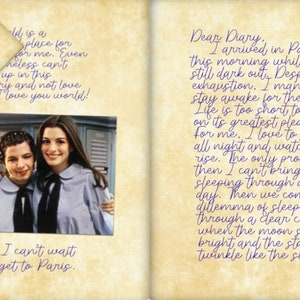 ld is a
place for
for me. Even
neless can't
up in this
ry and not love
love you world!
I can't wait
get to Paris.
Dear Diary,
I arrived in Pa
this morning whil
still dark out. Desp
exhaustion, I mana
stay awake for the
Life is too short to
on its greatest plea
for me. I love to
all night and watch
rise. The only pro
then I can't bring
sleeping through a
day. Then we con
dilemma of sleep
through a clear
when the moon s
bright and the sta
twinkle like the s